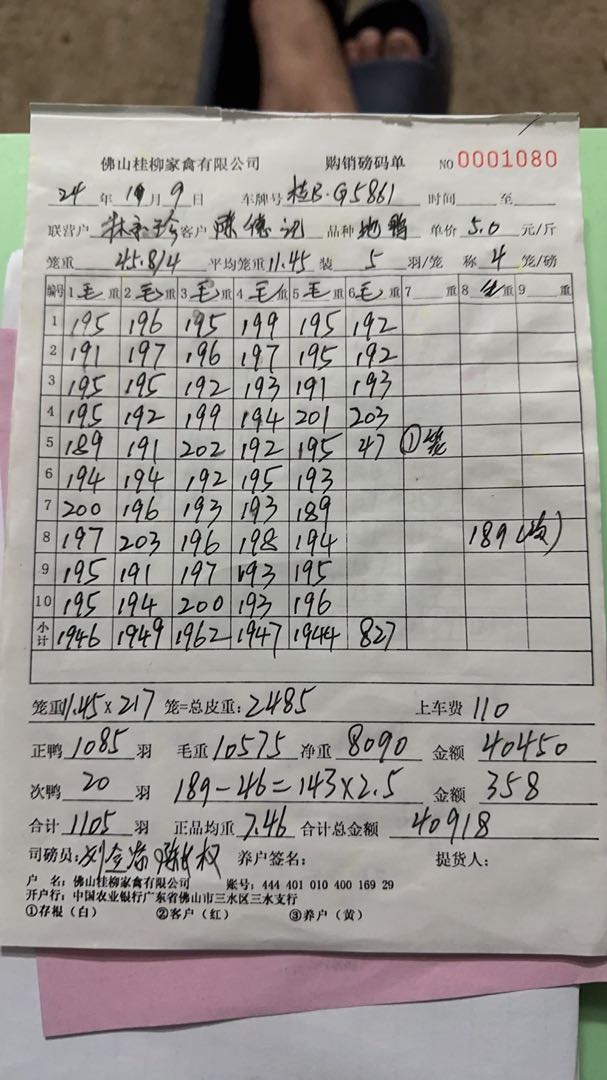 佛山桂柳家禽有限公司 购销磅码单 NO 0001080
24 年 月 9 日 车牌号 桂B·G5861 时间 至
联营户 客户 陈德记 品种 地鸭 单价 5.0 元/斤
笼重 45.8/4 平均笼重 11.45 装 5 羽/笼 称 4 笼/磅
编号 1 毛 重 2 毛 重 3 毛 重 4 毛 重 5 毛 重 6 毛 重 7 重 8 重 9 重
1 195 196 195 199 195 192
2 191 197 196 197 195 192
3 195 195 192 193 191 193
4 195 192 199 194 201 203
5 189 191 202 192 195 47 ①笼
6 194 194 192 195 193
7 200 196 193 193 189
8 197 203 196 198 194 189(次)
9 195 191 197 193 195
10 195 194 200 193 196
小计 1946 1949 1962 1947 1944 827
笼重 11.45 × 217 笼=总皮重: 2485 上车费 110
正鸭 1085 羽 毛重 10575 净重 8090 金额 40450
次鸭 20 羽 189-46=143×2.5 金额 358
合计 1105 羽 正品均重 7.46 合计总金额 40918
司磅员: 养户签名: 提货人:
户 名: 佛山桂柳家禽有限公司 账号: 444 401 010 400 169 29
开户行: 中国农业银行广东省佛山市三水区三水支行
①存根（白） ②客户（红） ③养户（黄）